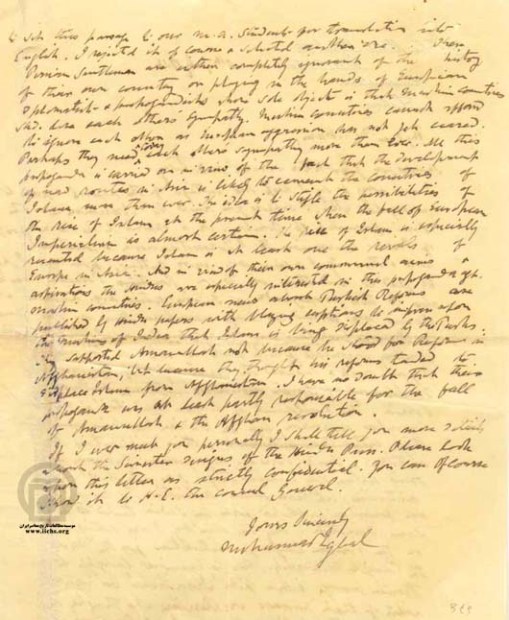 to set this passage to our M.A. Students for translation into
English. I rejected it of course & selected another one. These
Persian Gentlemen are either completely ignorant of the history
of their own country or playing in the hands of European
diplomatists & propagandists whose sole object is that Muslim countries
shd. lose each other's sympathy. Muslim countries cannot afford
to ignore each other as European aggression has not yet ceased.
Perhaps they need today each other's sympathy more than ever. All this
propaganda is carried on in view of the fact that the development
of new routes in Asia is likely to cement the countries of
Islam more than ever. The idea is to stifle the possibilities of
the rise of Islam at the present time when the fall of European
Imperialism is almost certain. The rise of Islam is especially
resented because Islam is at least one the rivals of
Europe in Asia. And in view of their own communal aims &
aspirations the Hindus are especially interested in this propaganda agt.
Muslim countries. European news about Turkish Reforms are
published by Hindu papers with glaring captions to impress upon
the Muslims of India that Islam is being displaced by the Turks.
They supported Amanullah not because he stood for Reform in
Afghanistan, but because they thought his reforms tended to
displace Islam from Afghanistan. I have no doubt that their
propaganda was at least partly responsible for the fall
of Amanullah & the Afghan revolution.
If I ever meet you personally I shall tell you more
about the Sinister designs of the Hindu Press. Please look
upon this letter as strictly confidential. You can of course
show it to H.E. the Consul General.
Yours Sincerely
Mohammad Iqbal
موسسه مطالعات تاریخ معاصر ایران
www.iichs.org